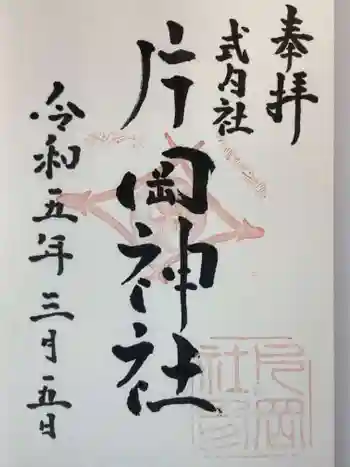 奉拝
式内社
片岡神社
令和五年三月五日
片岡
社印